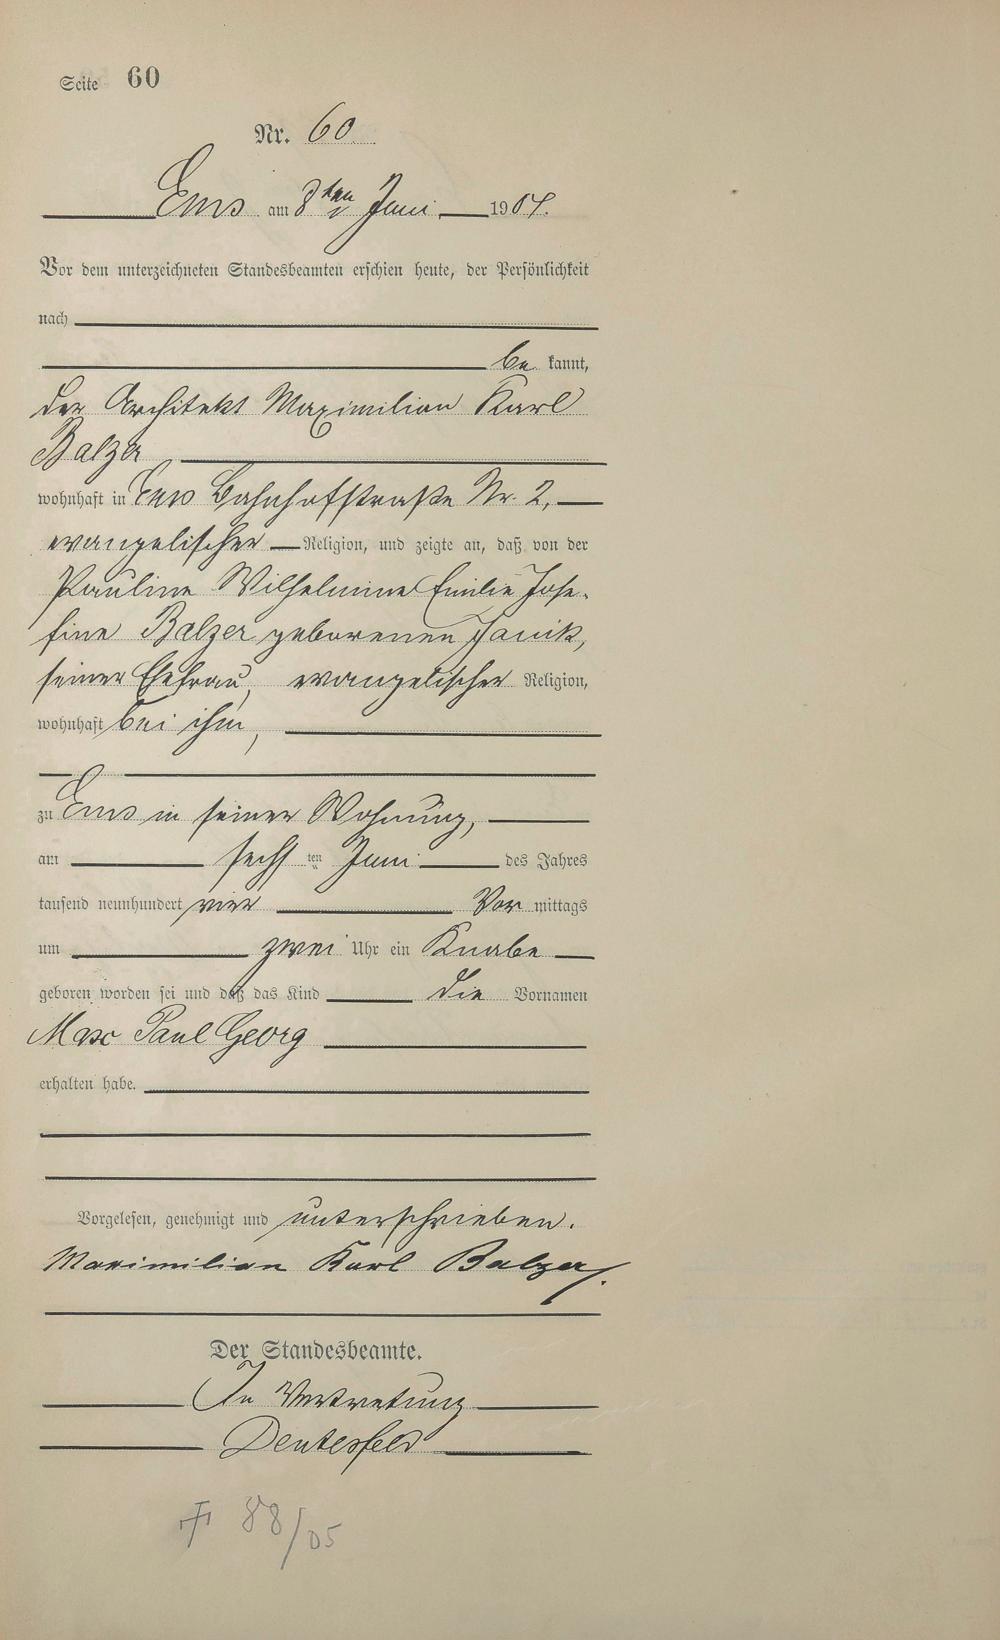 Seite 60
Nr. 60.
Ems am 8ten Juni 1904.
Vor dem unterzeichneten Standesbeamten erschien heute, der Persönlichkeit
nach
be kannt,
der Architekt Maximilian Karl
Balzer
wohnhaft in Ems Bahnhofstraße Nr. 2,
evangelischer Religion, und zeigte an, daß von der
Pauline Wilhelmine Emilie Jose-
fine Balzer geborenen Janik,
seiner Ehefrau, evangelischer Religion,
wohnhaft bei ihm,
zu Ems in seiner Wohnung,
am sechsten Juni des Jahres
tausend neunhundert vier Vor mittags
um zwei Uhr ein Knabe
geboren worden sei und daß das Kind die Vornamen
Max Paul Georg
erhalten habe.
Vorgelesen, genehmigt und unterschrieben.
Maximilian Karl Balzer.
Der Standesbeamte.
In Vertretung
88/05